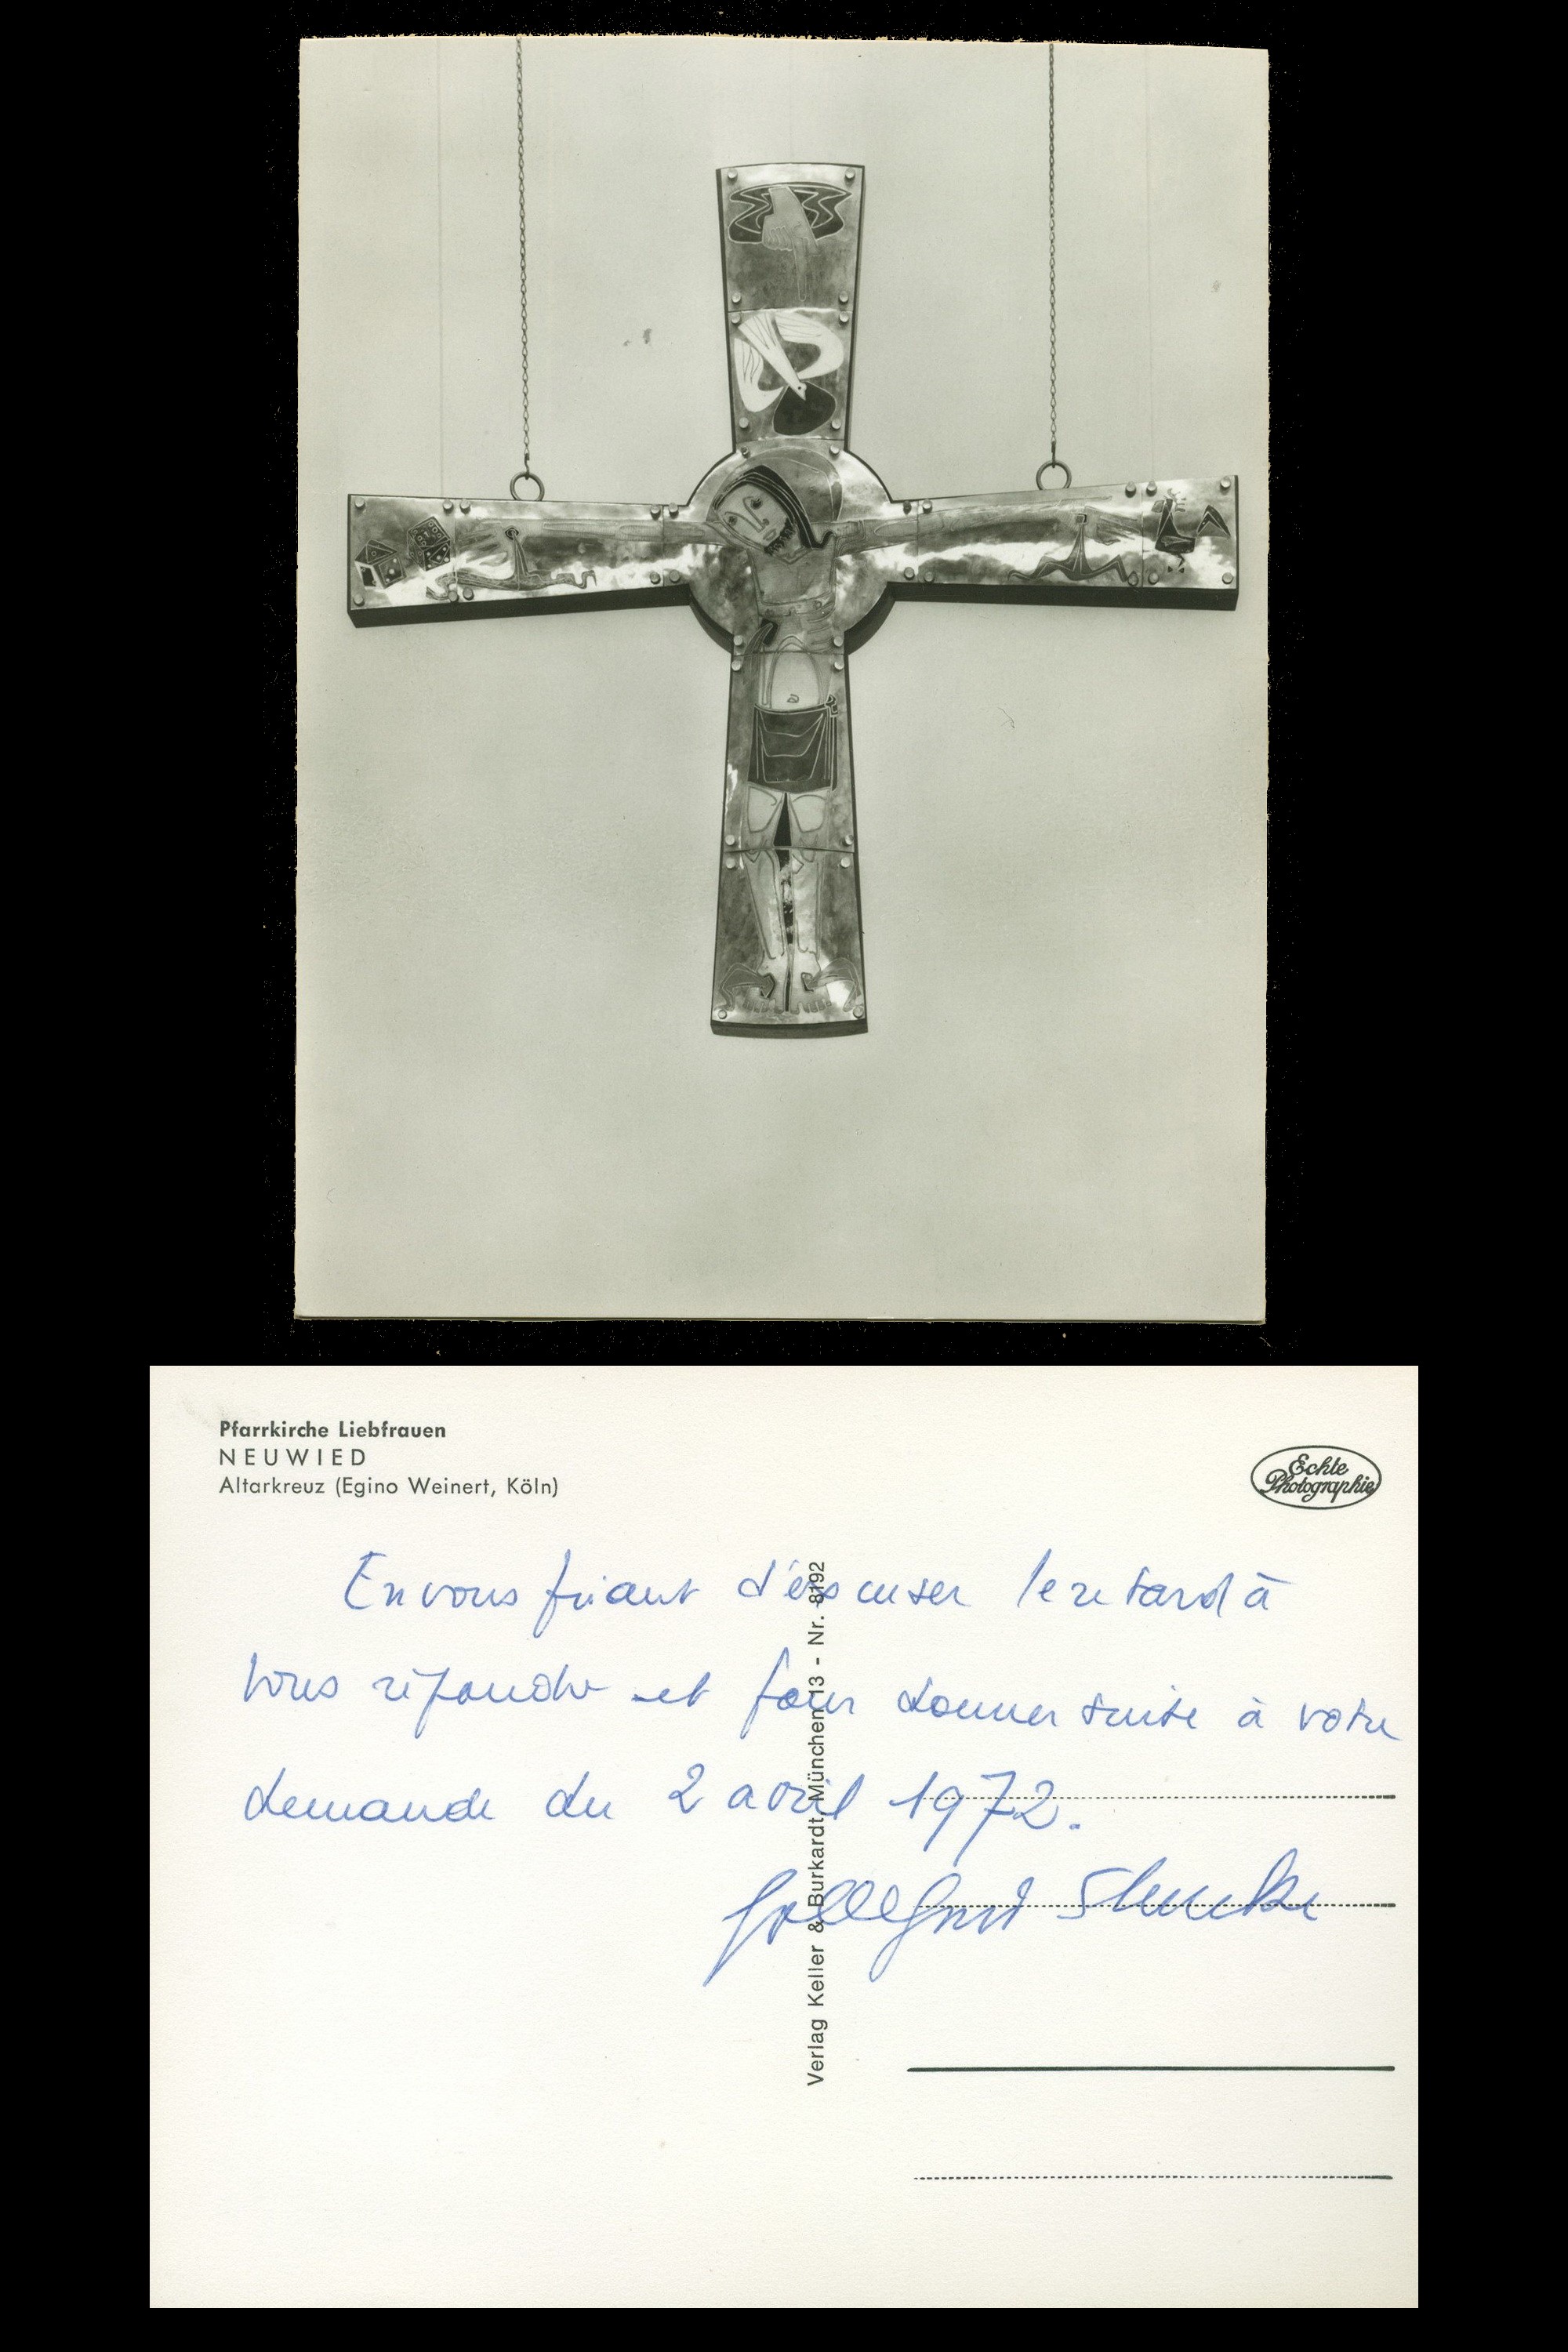 Pfarrkirche Liebfrauen
NEUWIED
Altarkreuz (Egino Weinert, Köln)
Echte
Photographie
En vous priant d'excuser le retard à
vous répondre et pour donner suite à votre
demande du 2 avril 1972.
Verlag Keller & Burkardt, München 13 - Nr. 8192